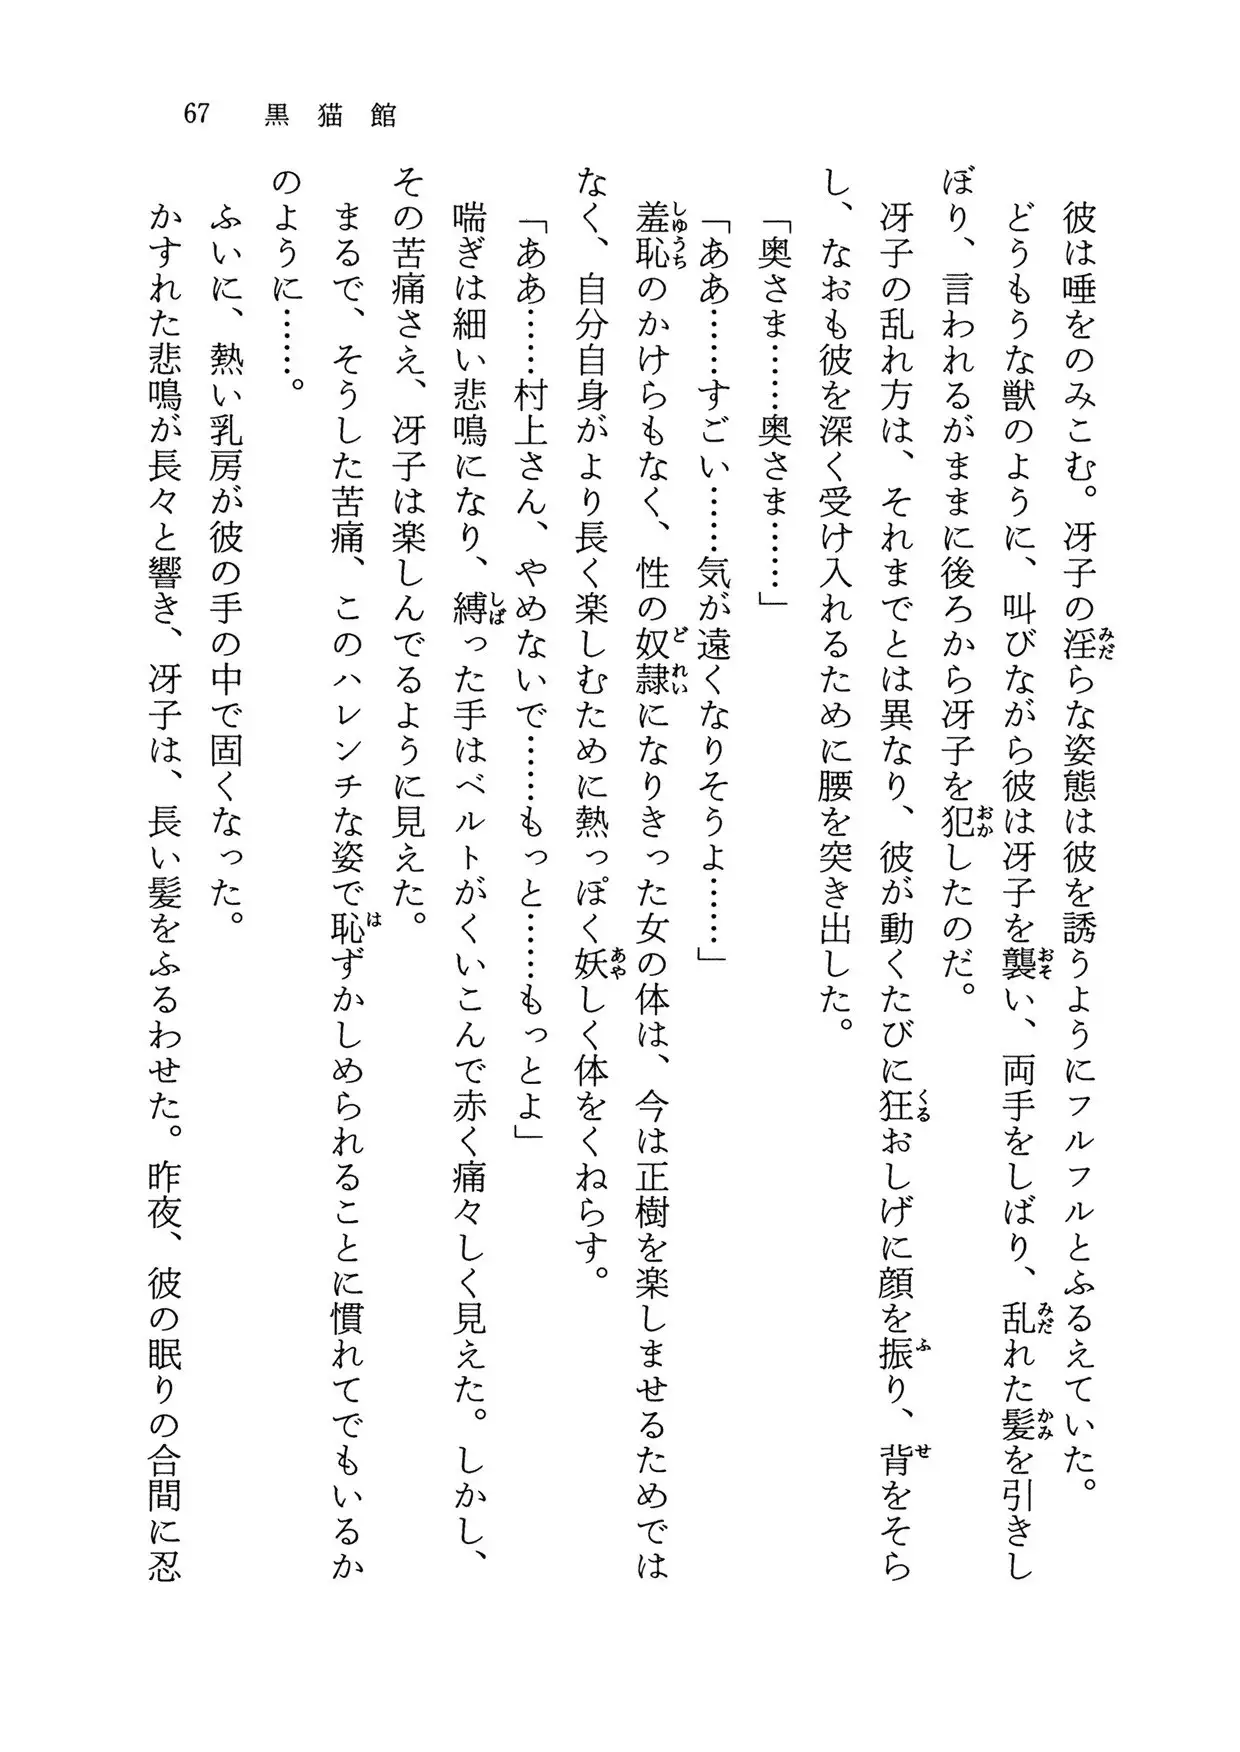 67 黒猫館
彼は唾をのみこむ。冴子の淫らな姿態は彼を誘うようにフルフルとふるえていた。
どうもうな獣のように、叫びながら彼は冴子を襲い、両手をしばり、乱れた髪を引きし
ぼり、言われるがままに後ろから冴子を犯したのだ。
冴子の乱れ方は、それまでとは異なり、彼が動くたびに狂おしげに顔を振り、背をそら
し、なおも彼を深く受け入れるために腰を突き出した。
「奥さま……奥さま……」
「ああ……すごい……気が遠くなりそうよ……」
羞恥のかけらもなく、性の奴隷になりきった女の体は、今は正樹を楽しませるためでは
なく、自分自身がより長く楽しむために熱っぽく妖しく体をくねらす。
「ああ……村上さん、やめないで……もっと……もっとよ」
喘ぎは細い悲鳴になり、縛った手はベルトがくいこんで赤く痛々しく見えた。しかし、
その苦痛さえ、冴子は楽しんでるように見えた。
まるで、そうした苦痛、このハレンチな姿で恥ずかしめられることに慣れてでもいるか
のように……。
ふいに、熱い乳房が彼の手の中で固くなった。
かすれた悲鳴が長々と響き、冴子は、長い髪をふるわせた。昨夜、彼の眠りの合間に忍